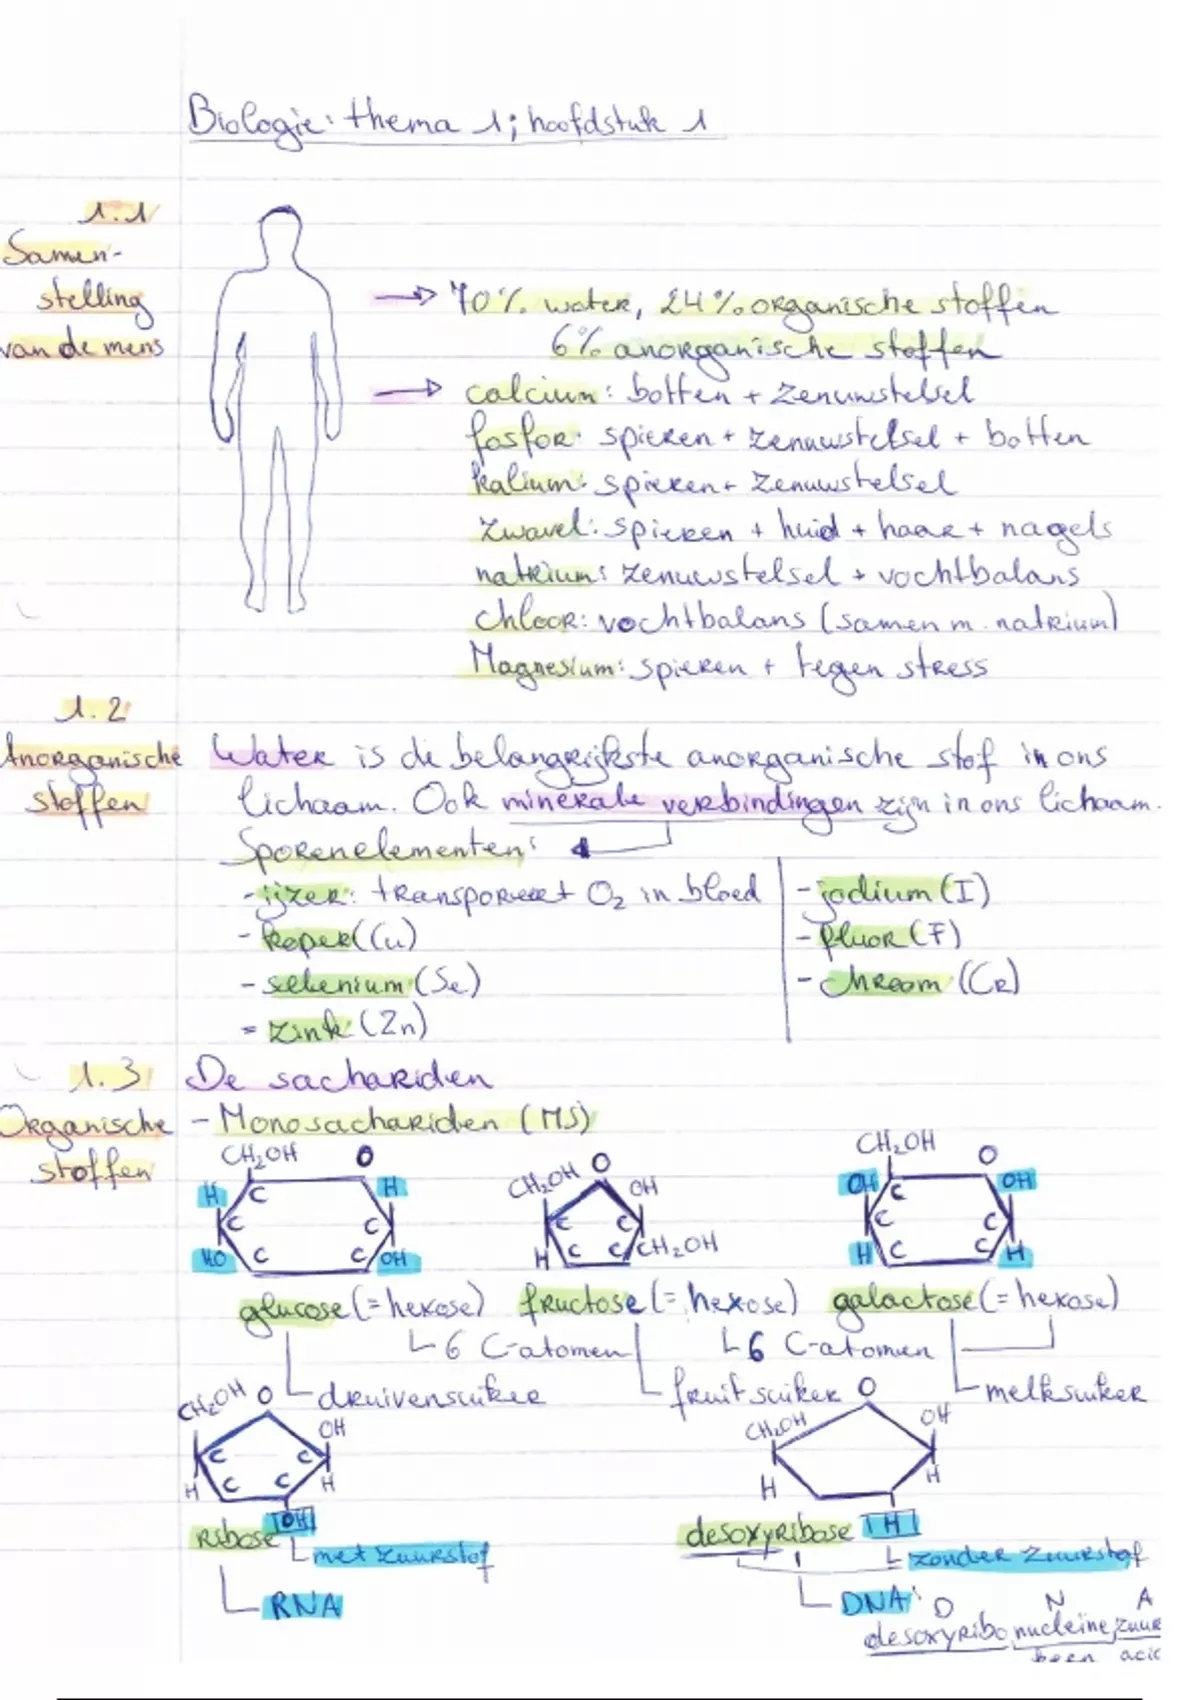 Biologie: thema 1; hoofdstuk 1
1.1
Samen-
stelling
van de mens
→ 70% water, 24% organische stoffen
6% anorganische stoffen
→ calcium: botten + zenuwstelsel
fosfor: spieren + zenuwstelsel + botten
kalium: spieren + zenuwstelsel
zwavel: spieren + huid + haar + nagels
natrium: zenuwstelsel + vochtbalans
chloor: vochtbalans (samen m. natrium)
Magnesium: spieren + tegen stress
1.2
Anorganische
stoffen
Water is de belangrijkste anorganische stof in ons
lichaam. Ook minerale verbindingen zijn in ons lichaam.
Sporenelementen:
- ijzer: transporteert O2 in bloed
- koper (Cu)
- selenium (Se)
- zink (Zn)
- jodium (I)
- fluor (F)
- chroom (Cr)
1.3
Organische
stoffen
De sachariden
- Monosachariden (MS)
CH2OH O
H C H
C C
HO C C OH
CH2OH O OH
C C
H C C CH2OH
CH2OH O
OH C OH
C C
H C C H
glucose (= hexose) fructose (= hexose) galactose (= hexose)
6 C-atomen 6 C-atomen
druivensuiker fruitsuiker melksuiker
CH2OH O OH
C C
H C C H
OH
ribose
met zuurstof
RNA
CH2OH O OH
H H
H
desoxyribose
zonder zuurstof
DNA: D N A
desoxyribo nucleine zuur
acid